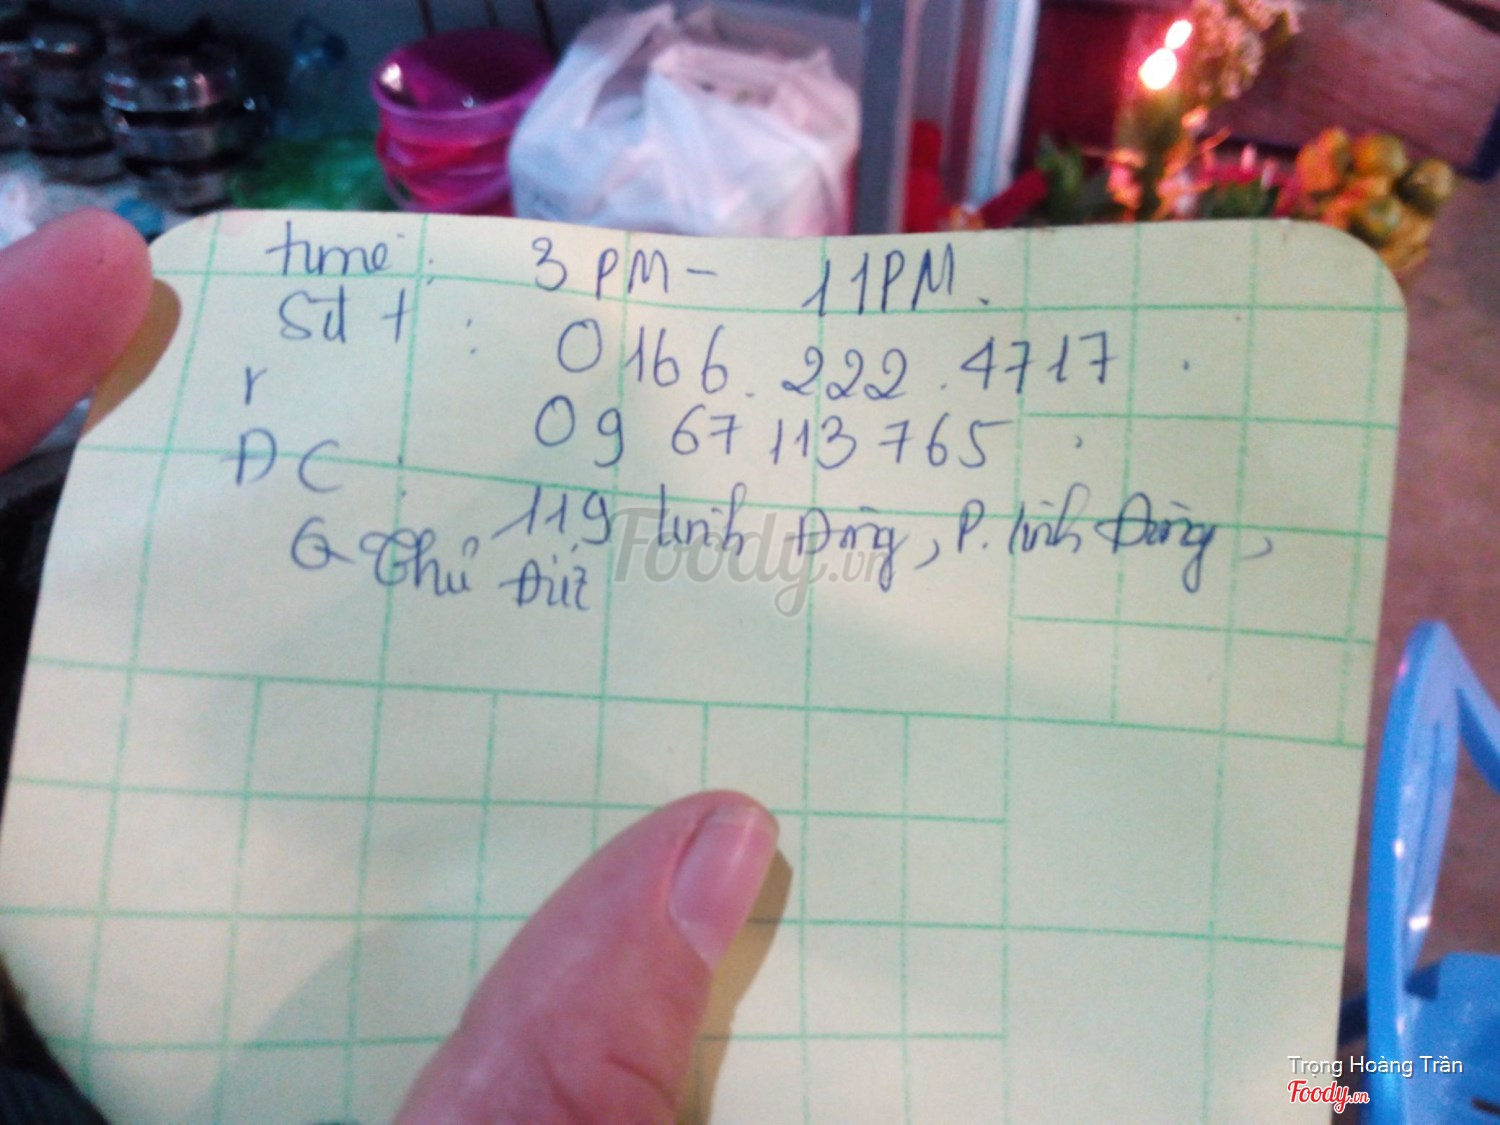 time: 3 PM - 11 PM.
Sđt: 0166.222.4717.
09 67 113 765.
ĐC: 119 Linh Đông, P. Linh Đông,
Q Thủ Đức
Foody.vn
Trọng Hoàng Trần
Foody.vn